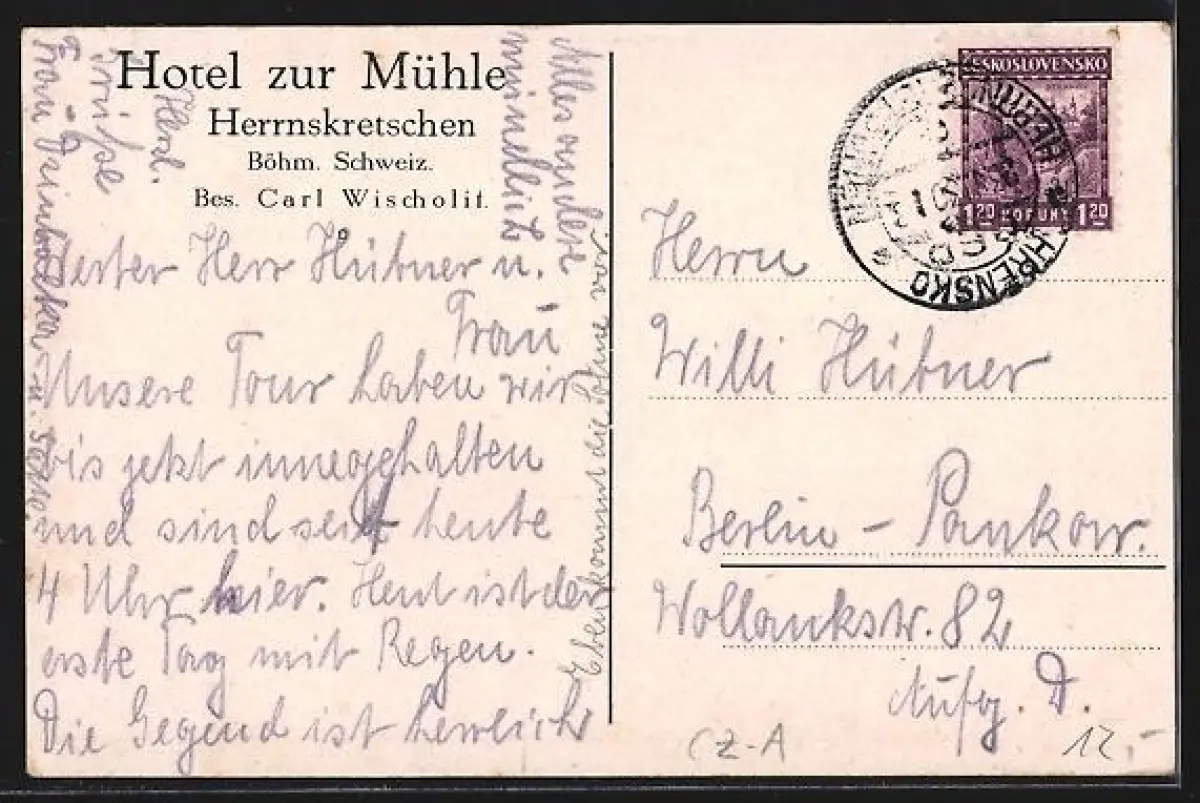 Hotel zur Mühle
Herrnskretschen
Böhm. Schweiz.
Bes. Carl Wischolit.
Werter Herr Hübner u.
Frau
Unsere Tour haben wir
bis jetzt innegehalten
und sind seit heute
4 Uhr hier. Heut ist der
erste Tag mit Regen.
Die Gegend ist herrlich
Alles andere
mündlich
Herzl.
Grüße
Frau u.
Eben kommt die Sonne vor
ČESKOSLOVENSKO
1 20 KORUNY 1 20
HŘENSKO
Herrn
Willi Hübner
Berlin - Pankow.
Wollankstr. 82
Aufg. D.
CZ-A
12,-